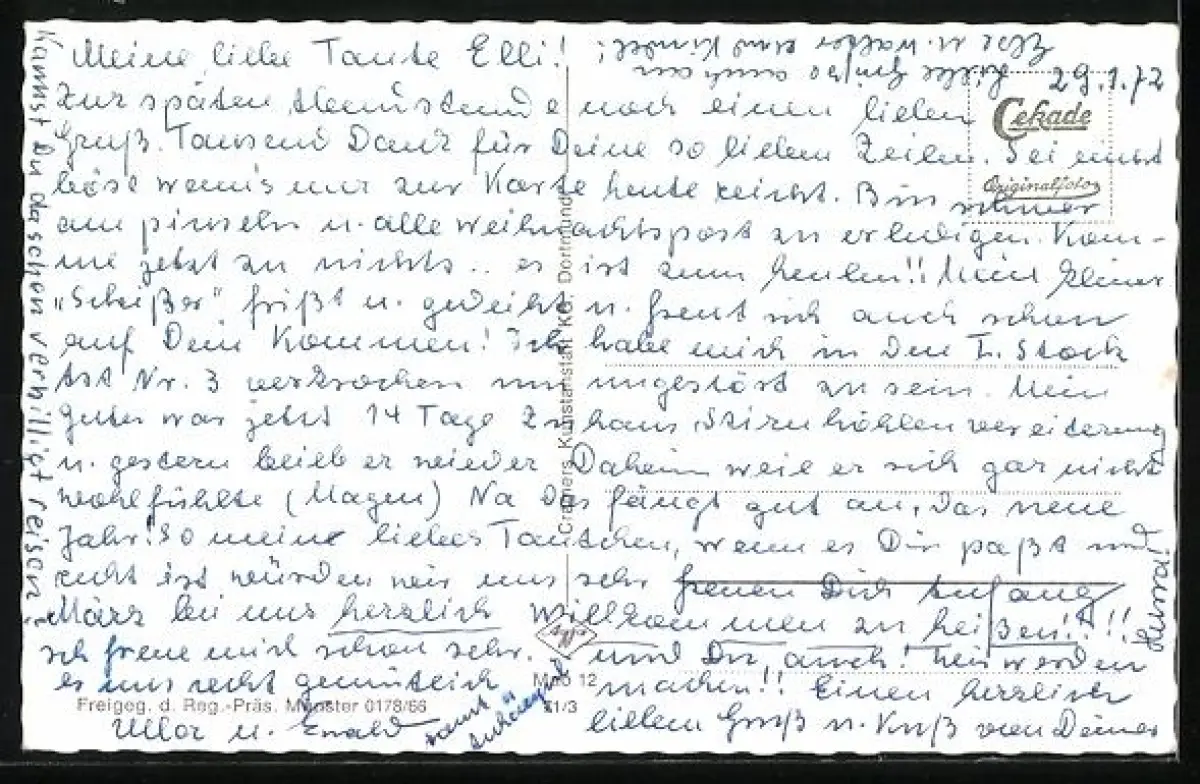 Meine liebe Tante Elli!
29.1.72
Zur späten Abendstunde noch einen lieben
Gruß. Tausend Dank für Deine so lieben Zeilen. Sei nicht
böse wenn's nur zur Karte heute reicht. Bin immer
am pinseln u. alle Weihnachtspost zu erledigen. Kom-
me jetzt zu nichts.. es ist zum heulen!! Mein kleiner
„Scheißer" frißt u. gedeiht u. freut sich auch schon
auf Dein Kommen! Ich habe mich in den I. Stock
Ast Nr. 3 verkrochen um ungestört zu sein. Mein
Guter war jetzt 14 Tage Zuhaus, Stirnhöhlenvereiterung
u. gestern blieb er wieder Daheim weil er sich gar nicht
wohlfühlte (Magen) Na das fängt gut an, das neue
Jahr! So meine liebes Tantchen, wenn es Dir paßt und
recht ist würden wir uns sehr freuen Dich Anfang
März bei uns herzlich willkommen zu heißen!!!!
Ich freue mich schon sehr. und Du, auch! Wir werden
es uns recht gemütlich machen!! Einen herzlich
lieben Gruß u. Kuß von Deiner
Ullor u. Ewald samt Anhang
Kannst Du da schon verbilligt reisen?
Bitte Grüße auch an
Else u. Walter und Kinder!
Cekade
Originalfoto
Cramers Kunstanstalt KG. Dortmund
Agfa
Freigeg. d. Reg.-Präs. Münster 0178/66
Mnö 12
71/3